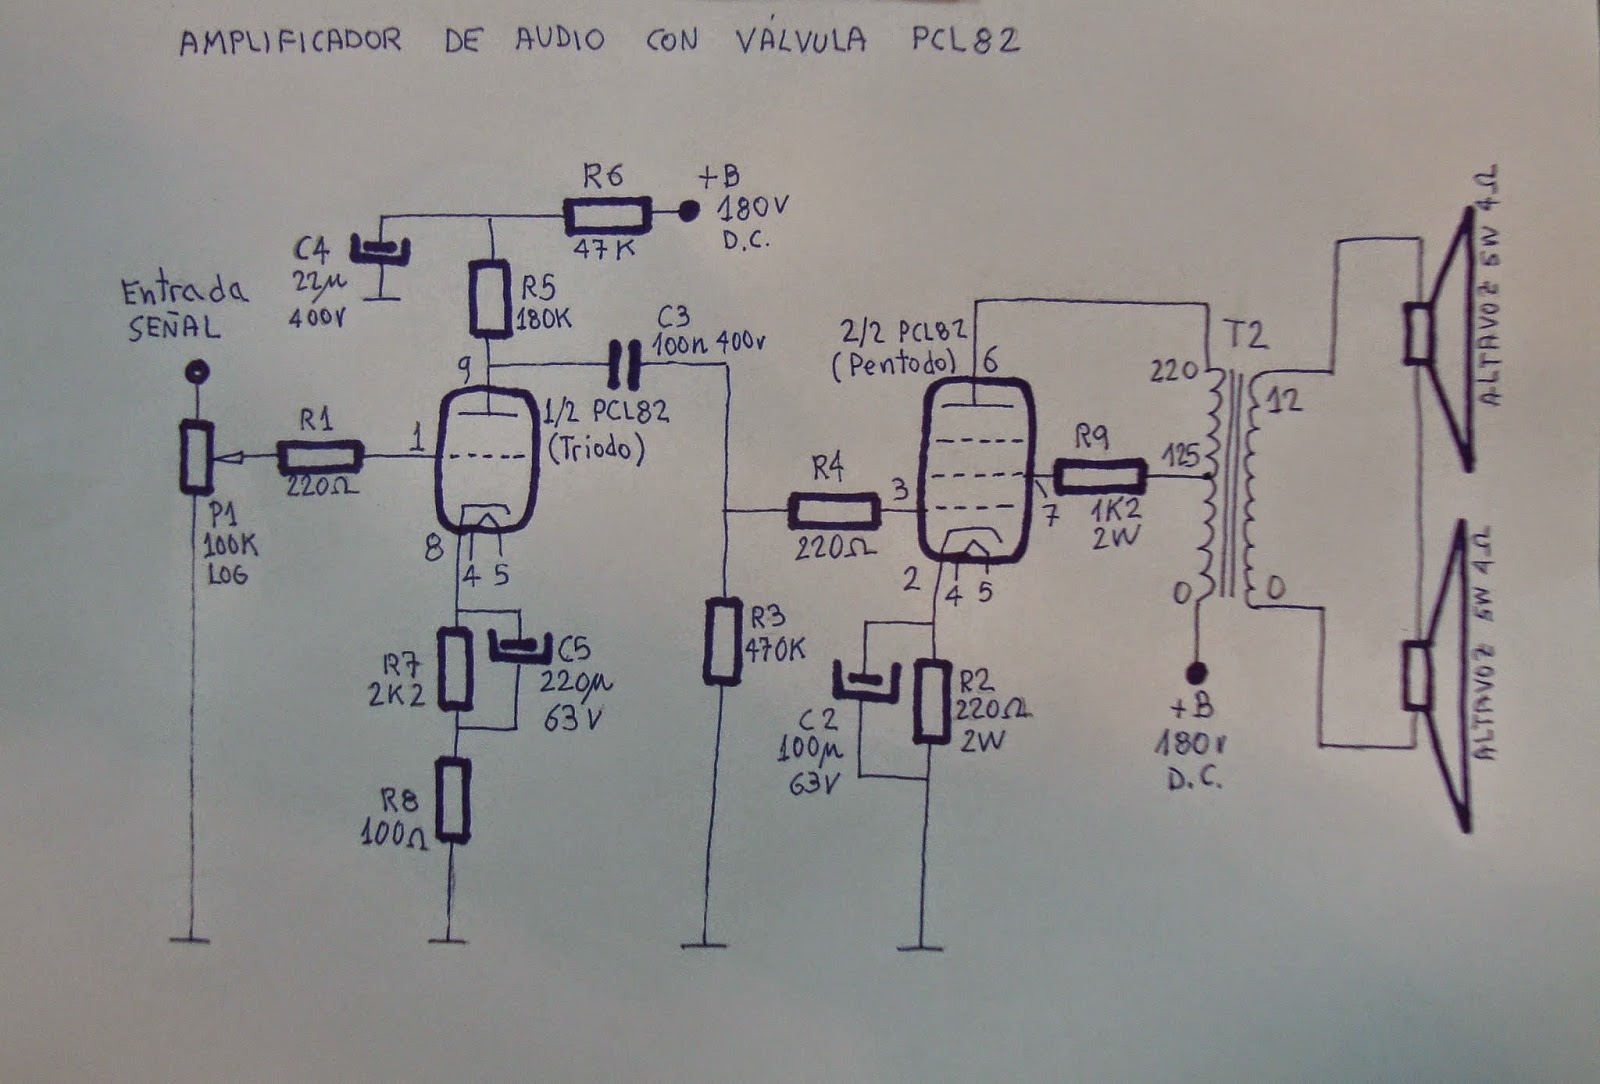 AMPLIFICADOR DE AUDIO CON VÁLVULA PCL82
R6
47K
+B
180V
D.C.
C4
22µ
400V
Entrada
SEÑAL
R5
180K
C3
100n 400v
9
1/2 PCL82
(Triodo)
R1
220Ω
1
P1
100K
LOG
8
4 5
R7
2K2
C5
220µ
63V
R8
100Ω
2/2 PCL82
(Pentodo)
6
R4
220Ω
3
R3
470K
2
4 5
7
R9
1K2
2W
C2
100µ
63V
R2
220Ω
2W
T2
220
125
0
12
0
+B
180V
D.C.
ALTAVOZ 5W 4Ω
ALTAVOZ 5W 4Ω